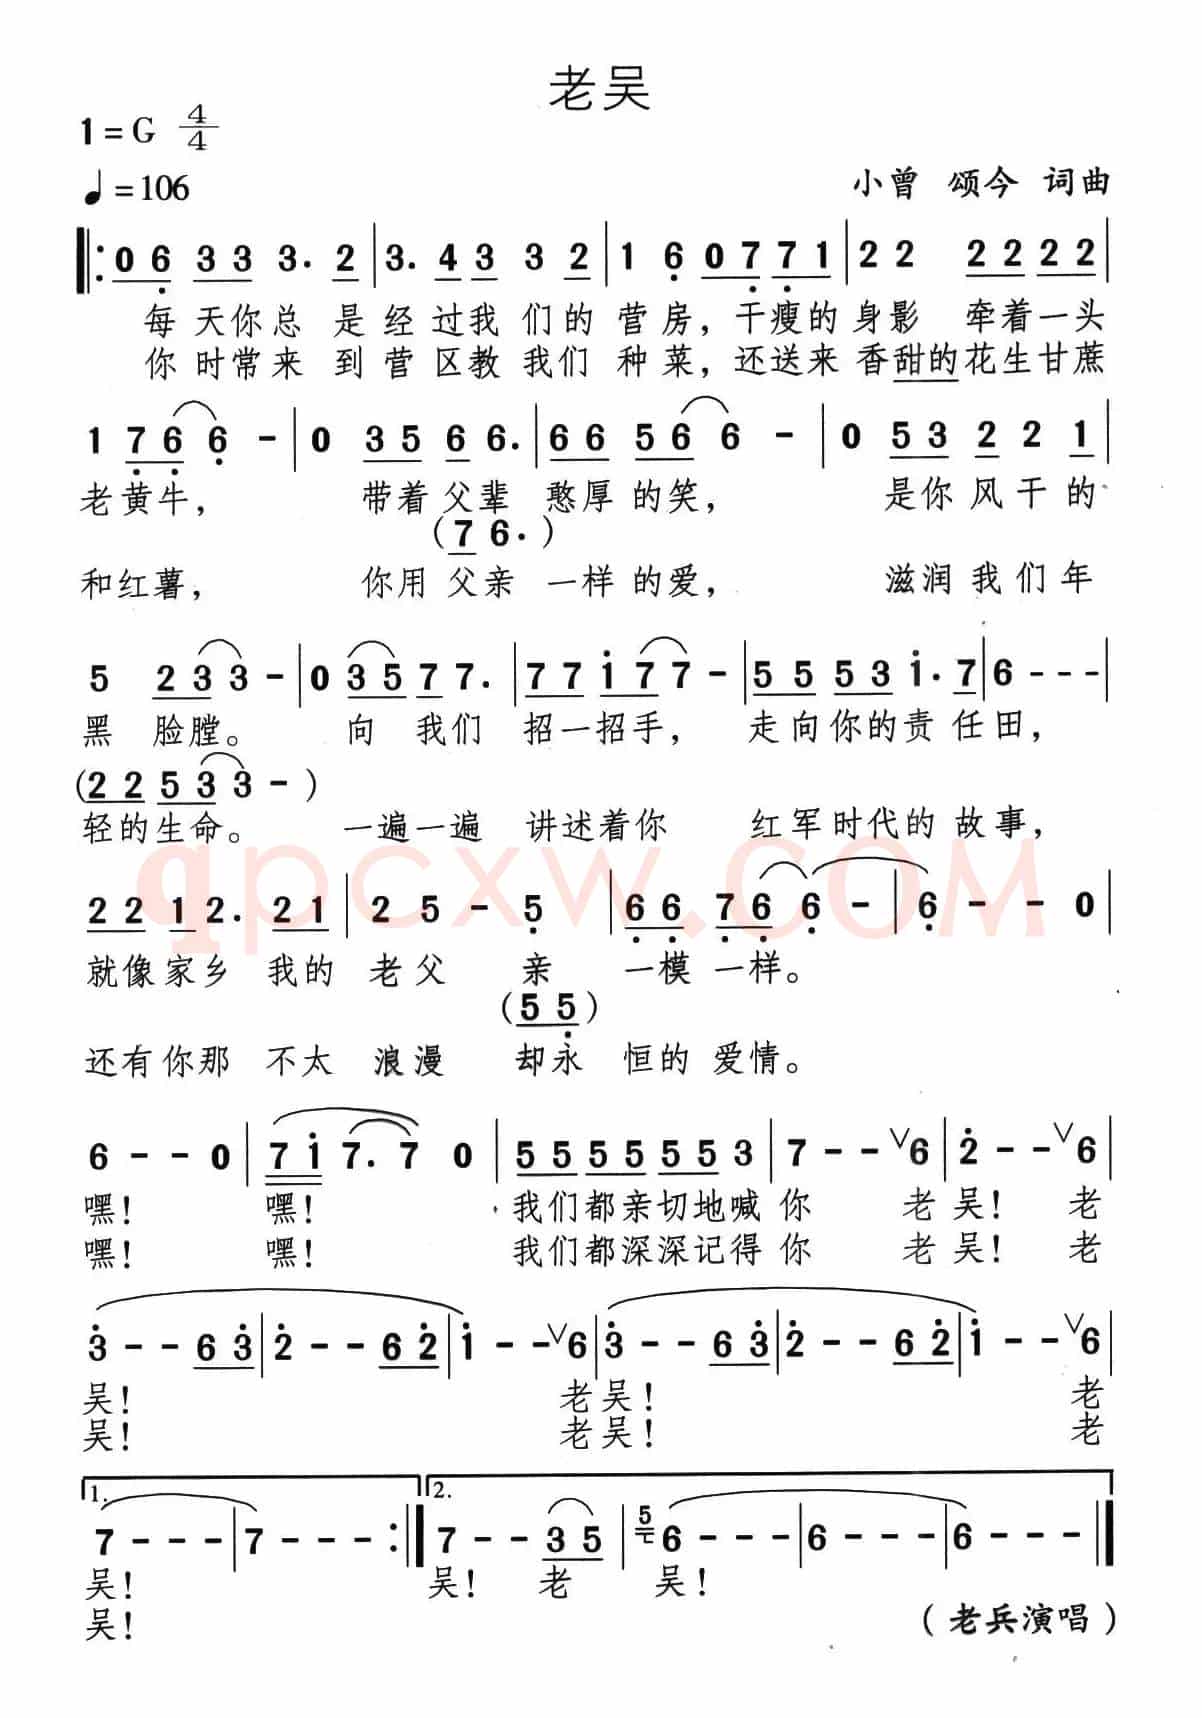 老吴
1=G 4/4
♩=106
小曾 颂今 词曲
0 6 3 3 3. 2 | 3. 4 3 3 2 | 1 6 0 7 7 1 | 2 2 2 2 2 2 |
每天你总 是经过我们的营房，干瘦的身影 牵着一头
你时常来 到营区教我们种菜，还送来香甜的花生甘蔗
1 7 6 6 - | 0 3 5 6 6. | 6 6 5 6 6 - | 0 5 3 2 2 1 |
老黄牛， 带着父辈 憨厚的笑， 是你风干的
(7 6.)
和红薯， 你用父亲 一样的爱， 滋润我们年
5 2 3 3 - | 0 3 5 7 7. | 7 7 1 7 7 - | 5 5 5 3 1. 7 | 6 - - - |
黑 脸膛。 向 我们 招一招手， 走向你的责任田，
(2 2 5 3 3 - )
轻的生命。 一遍一遍 讲述着你 红军时代的故事，
2 2 1 2. 2 1 | 2 5 - 5 | 6 6 7 6 6 - | 6 - - 0
就像家乡 我的 老父 亲 一模一样。
(5 5)
还有你那 不太 浪漫 却永 恒的爱情。
6 - - 0 | 7 1 7. 7 0 | 5 5 5 5 5 5 3 | 7 - - ∨6 | 2 - - ∨6
嘿！ 嘿！ 我们都亲切地喊你 老吴！ 老
嘿！ 嘿！ 我们都深深记得你 老吴！ 老
3 - - 6 3 | 2 - - 6 2 | 1 - - ∨6 | 3 - - 6 3 | 2 - - 6 2 | 1 - - ∨6
吴！ 老吴！ 老
吴！ 老吴！ 老
1. 2.
7 - - - | 7 - - - :| 7 - - 3 5 | 5 6 - - - | 6 - - - | 6 - - - ‖
吴！ 吴！ 老 吴！
吴！
（老兵演唱）
qpcxw.COM